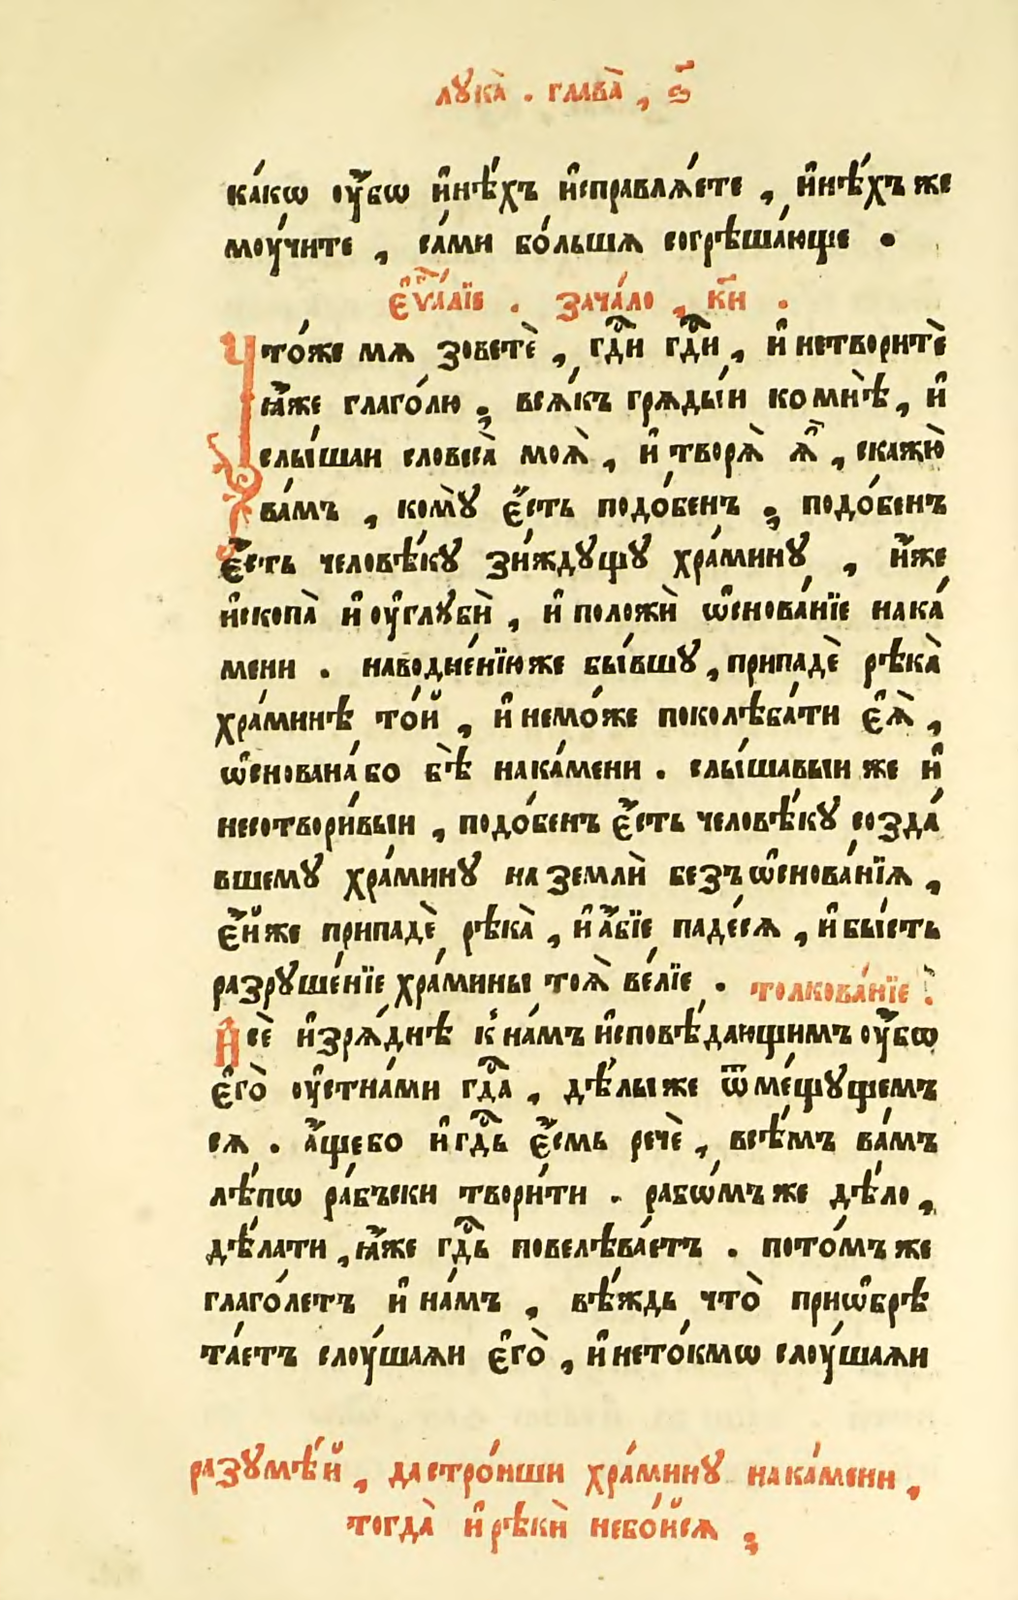 лꙋка̀ . глава̀ , ѕ҃
ка́кѡ оу҆́бѡ и҆нѣ́хъ и҆справлѧ́ете , и҆нѣ́хъ же
моу́чите , са́ми бо́льшѧ согрѣша́юще .
є҆ѵⷢ҇а́лїе . зача́ло , к҃и .
Что́же мѧ зоветѐ , гдⷭ҇и гдⷭ҇и , и҆ нетворитѐ
ꙗ҆́же глаго́лю ; всѧ́къ грѧды́и комнѣ̀ , и҆
слы́шаи словеса̀ моѧ̀ , и҆ творѧ̀ ѧ҆̀ , скажꙋ̀
ва́мъ , комꙋ̀ є҆́сть подо́бенъ ; подо́бенъ
є҆́сть человѣ́кꙋ зи́ждꙋщꙋ хра́минꙋ , и҆́же
и҆скопа̀ и҆ оу҆глꙋбѝ , и҆ положѝ ѡ҆снова́нїе нака́
мени . наводне́нїюже бы́вшꙋ , припадѐ рѣка̀
хра́минѣ то́й , и҆ немо́же поколѣба́ти є҆ѧ̀ ,
ѡ҆снована́ бо бѣ̀ нака́мени . слы́шавыи же и҆
несотвори́выи , подо́бенъ є҆́сть человѣ́кꙋ созда́
вшемꙋ хра́минꙋ на землѝ безъ ѡ҆снова́нїѧ ,
є҆́йже припадѐ рѣка̀ , и҆ а҆́бїе паде́сѧ , и҆ бы́сть
разрꙋше́нїе хра́мины тоѧ̀ ве́лїе . толкова́нїе :
И҆ сѐ и҆зрѧ́днѣ к̾на́мъ и҆сповѣ́дающимъ оу҆́бѡ
є҆го̀ оу҆стна́ми гдⷭ҇а , дѣ́лы же ѿме́щꙋщемъ
сѧ . а҆́ще бо и҆ гдⷭ҇ь є҆́смь речѐ , всѣ́мъ ва́мъ
лѣ́пѡ ра́бъски твори́ти . рабѡ́мъ же дѣ́ло ,
дѣ́лати , ꙗ҆́же гдⷭ҇ь повелѣва́етъ . пото́мъ же
глаго́летъ и҆ на́мъ , вѣ́ждь что̀ приѡ҆брѣ
та́етъ слоу́шаѧи є҆го̀ , и҆ нето́кмѡ слоу́шаѧи
разꙋмѣ́й , да стро́иши хра́минꙋ нака́мени ,
тогда̀ и҆ рѣкѝ небо́йсѧ ;